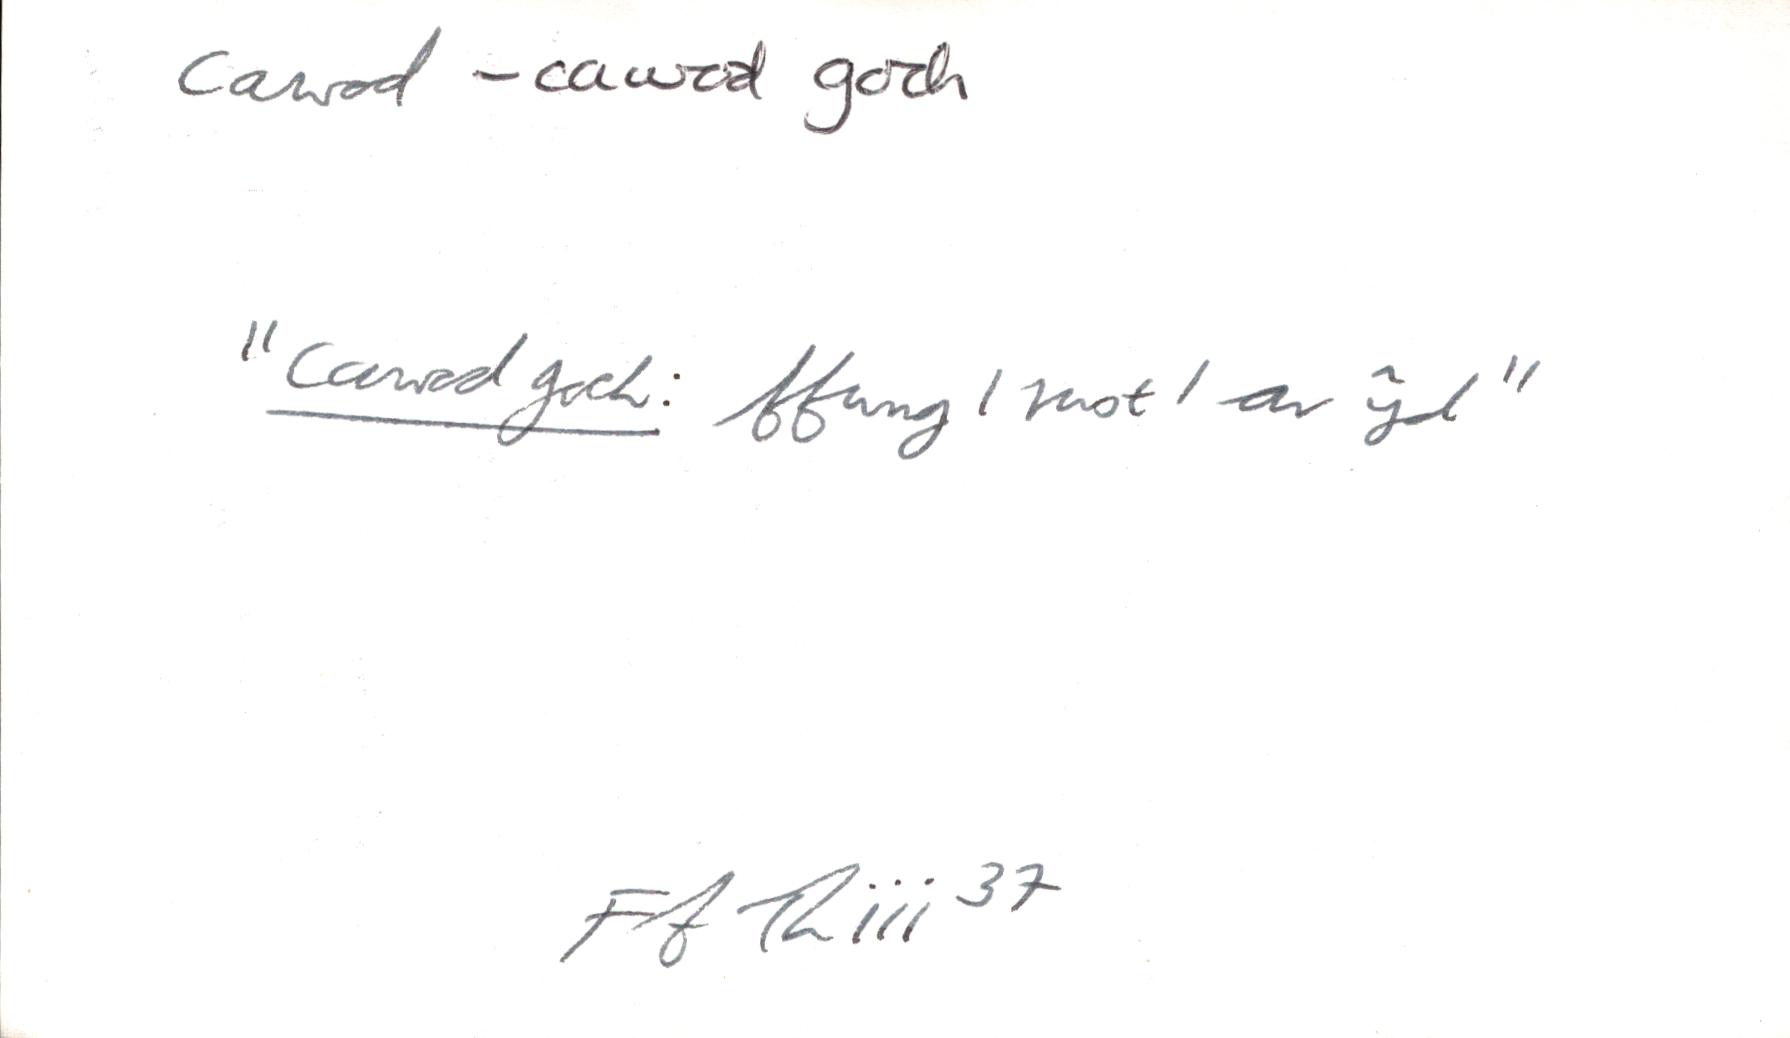 Cawod - cawod goch
"Cawod goch: ffwng / rust / ar ŷd"
Ff Th iii 37